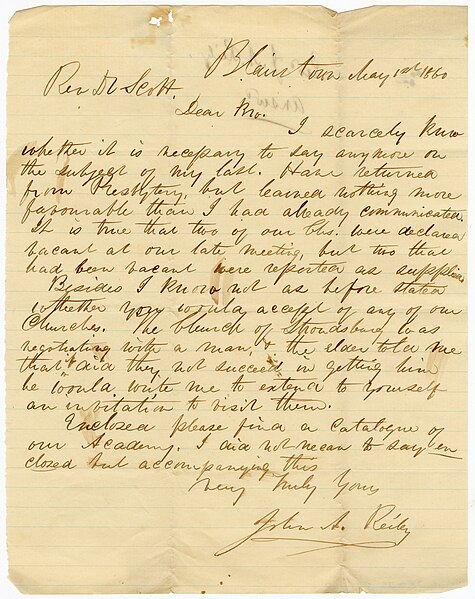 Blairstown May 1st 1860
Rev. Dr Scott.
Dear Bro.
I scarcely know
whether it is necessary to say anymore on
the subject of my last. Have returned
from Presbytery, but learned nothing more
favourable than I had already communicated
It is true that two of our chs. were declared
vacant at our late meeting, but two that
had been vacant were reported as supplied
Besides I know not as before stated
whether you would accept of any of our
Churches. The church of Stroudsburg was
negotiating with a man, & the elder told me
that did they not succeed in getting him
he would write me to extend to yourself
an invitation to visit them.
Enclosed please find a Catalogue of
our Academy. I did not mean to say en
closed but accompanying this
Very Truly Yours
John A. Reiley